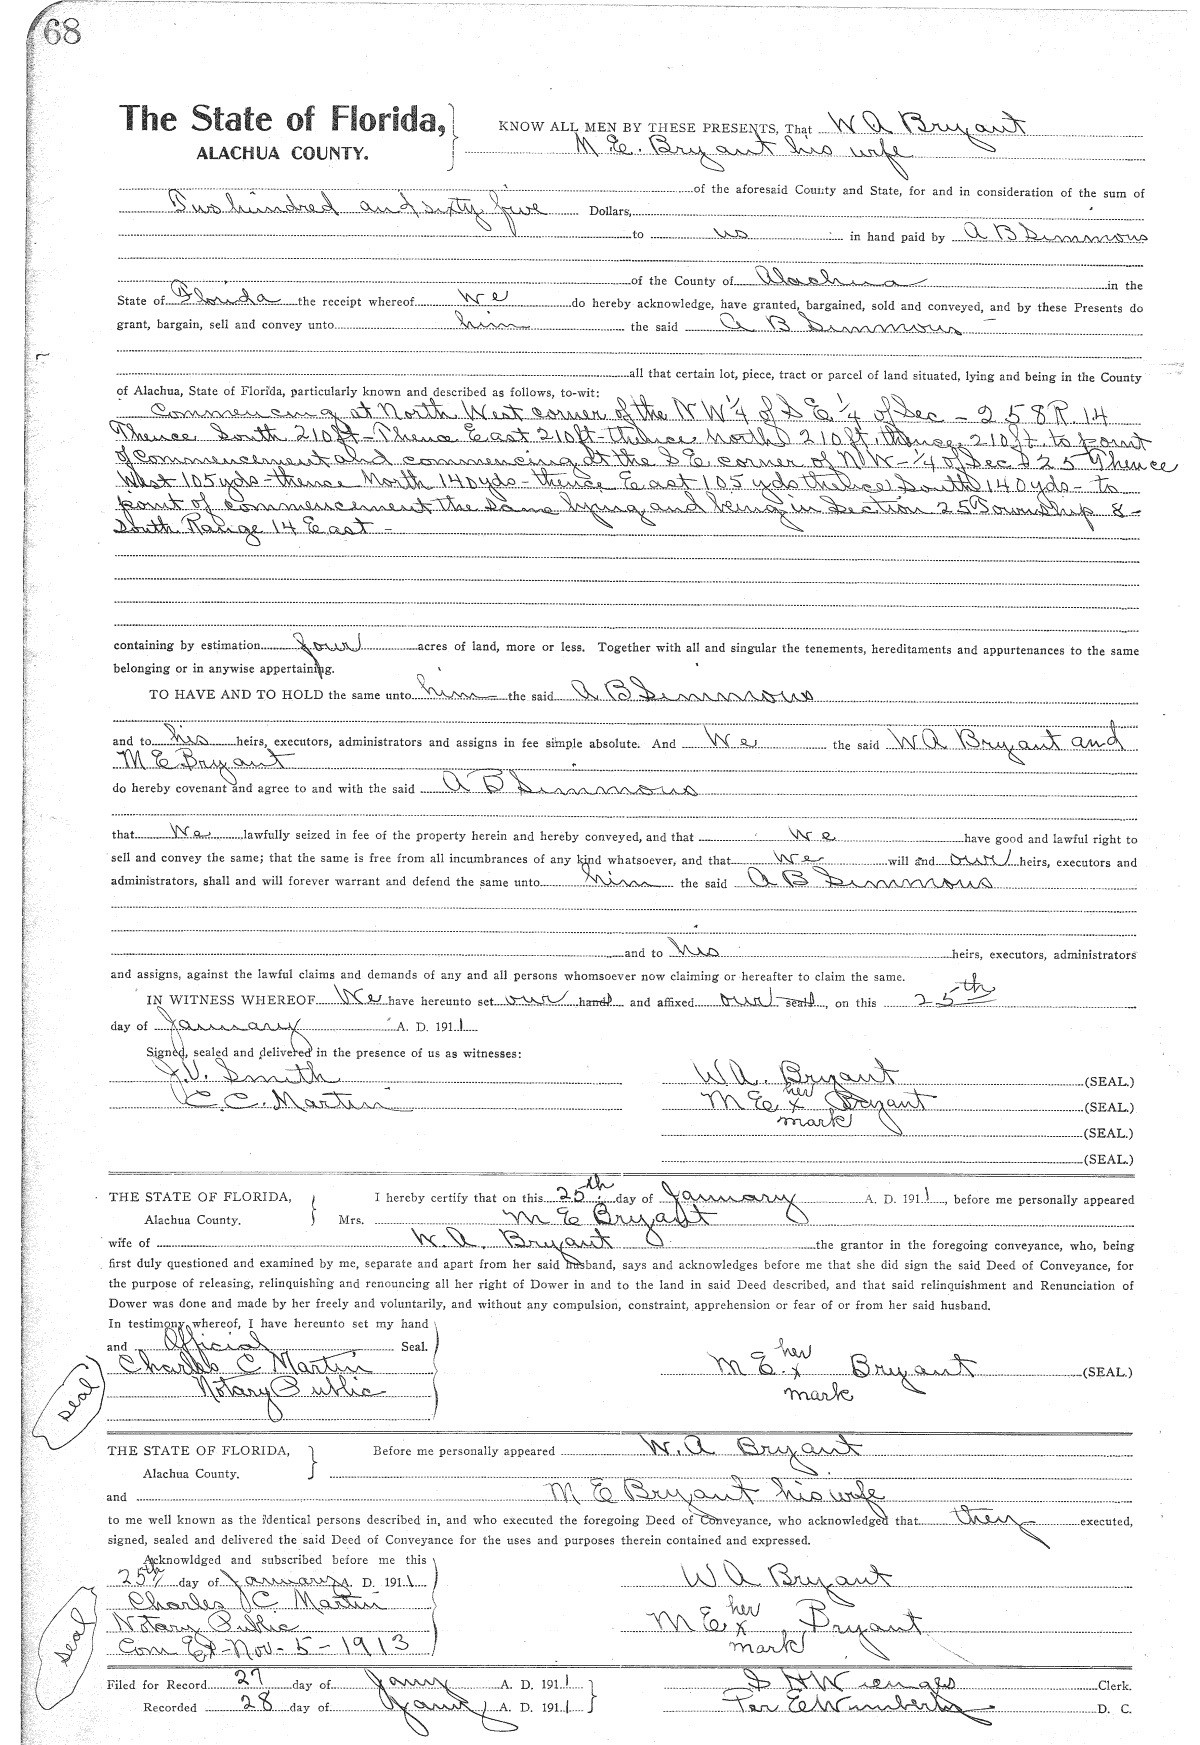 68
The State of Florida, KNOW ALL MEN BY THESE PRESENTS, That W A Bryant
ALACHUA COUNTY. M. E. Bryant his wife
of the aforesaid County and State, for and in consideration of the sum of
Two hundred and sixty five Dollars,
to us in hand paid by A B Simmons
of the County of Alachua in the
State of Florida the receipt whereof we do hereby acknowledge, have granted, bargained, sold and conveyed, and by these Presents do
grant, bargain, sell and convey unto him the said A B Simmons
all that certain lot, piece, tract or parcel of land situated, lying and being in the County
of Alachua, State of Florida, particularly known and described as follows, to-wit:
Commencing at North West corner of the NW 1/4 of S E 1/4 of Sec - 25 8 R 14
Thence South 210 ft - Thence East 210 ft - thence North 210 ft. thence 210 ft to point
of commencement and commencing at the S E corner of NW - 1/4 of Sec 25 Thence
West 105 yds - thence North 140 yds - thence East 105 yds thence South 140 yds - to
point of commencement the same lying and being in Section 25 Township 8 -
South Range 14 East -
containing by estimation four acres of land, more or less. Together with all and singular the tenements, hereditaments and appurtenances to the same
belonging or in anywise appertaining.
TO HAVE AND TO HOLD the same unto him the said A B Simmons
and to his heirs, executors, administrators and assigns in fee simple absolute. And We the said W A Bryant and
M E Bryant
do hereby covenant and agree to and with the said A B Simmons
that We lawfully seized in fee of the property herein and hereby conveyed, and that we have good and lawful right to
sell and convey the same; that the same is free from all incumbrances of any kind whatsoever, and that we will and our heirs, executors and
administrators, shall and will forever warrant and defend the same unto him the said A B Simmons
and to his heirs, executors, administrators
and assigns, against the lawful claims and demands of any and all persons whomsoever now claiming or hereafter to claim the same.
IN WITNESS WHEREOF We have hereunto set our hands and affixed our seals, on this 25th
day of January A. D. 1911
Signed, sealed and delivered in the presence of us as witnesses:
J. V. Smith W A. Bryant (SEAL.)
C. C. Martin M E her x mark Bryant (SEAL.)
(SEAL.)
(SEAL.)
THE STATE OF FLORIDA, I hereby certify that on this 25th day of January A. D. 1911, before me personally appeared
Alachua County. Mrs. M E Bryant
wife of W. A. Bryant the grantor in the foregoing conveyance, who, being
first duly questioned and examined by me, separate and apart from her said husband, says and acknowledges before me that she did sign the said Deed of Conveyance, for
the purpose of releasing, relinquishing and renouncing all her right of Dower in and to the land in said Deed described, and that said relinquishment and Renunciation of
Dower was done and made by her freely and voluntarily, and without any compulsion, constraint, apprehension or fear of or from her said husband.
In testimony whereof, I have hereunto set my hand
and Official Seal.
Charles C Martin M E. her x mark Bryant (SEAL.)
Notary Public
seal
THE STATE OF FLORIDA, Before me personally appeared W. A Bryant
Alachua County.
and M E Bryant his wife
to me well known as the identical persons described in, and who executed the foregoing Deed of Conveyance, who acknowledged that they executed,
signed, sealed and delivered the said Deed of Conveyance for the uses and purposes therein contained and expressed.
Acknowldged and subscribed before me this
25th day of January A. D. 1911 W A Bryant
Charles C Martin
Notary Public M E her x mark Bryant
Com Ex - Nov - 5 - 1913
seal
Filed for Record 27 day of Jany A. D. 1911 Clerk.
Recorded 28 day of Jany A. D. 1911 Per D. C.